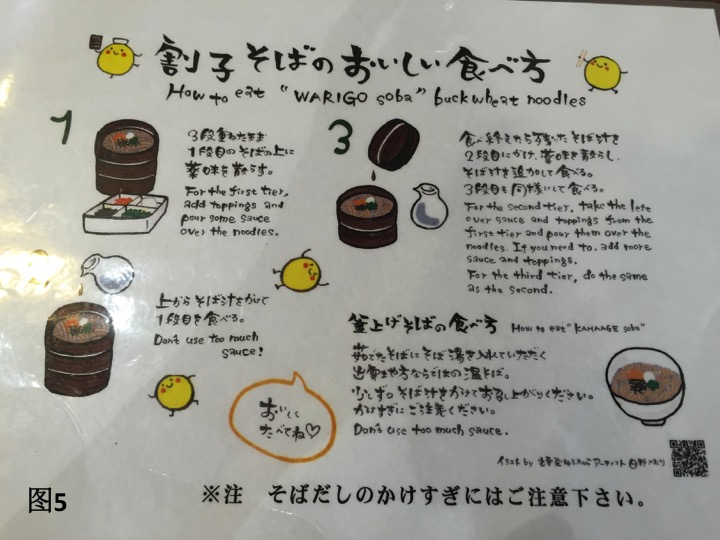 割子そばのおいしい食べ方
How to eat "WARIGO soba" buckwheat noodles
1
3段重ねたまま
1段目のそばの上に
薬味を散らす。
For the first tier,
add toppings and
pour some sauce
over the noodles.
上からそば汁をかけて
1段目を食べる。
Don't use too much
sauce!
3
食べ終えたら残ったそば汁を
2段目にかけ、薬味を散らし、
そば汁を追加して食べる。
3段目も同様にして食べる。
For the second tier, take the left
over sauce and toppings from the
first tier and pour them over the
noodles. If you need to, add more
sauce and toppings.
For the third tier, do the same
as the second.
釜上げそばの食べ方 How to eat "KAMAAGE soba"
茹でたそばにそば湯を入れていただく
出雲地方ならではの温そば。
少しずつそば汁をかけてお召し上がりください。
かけすぎにご注意ください。
Don't use too much sauce.
おいしく
たべてね♡
イラスト by
※注 そばだしのかけすぎにはご注意下さい。
图5